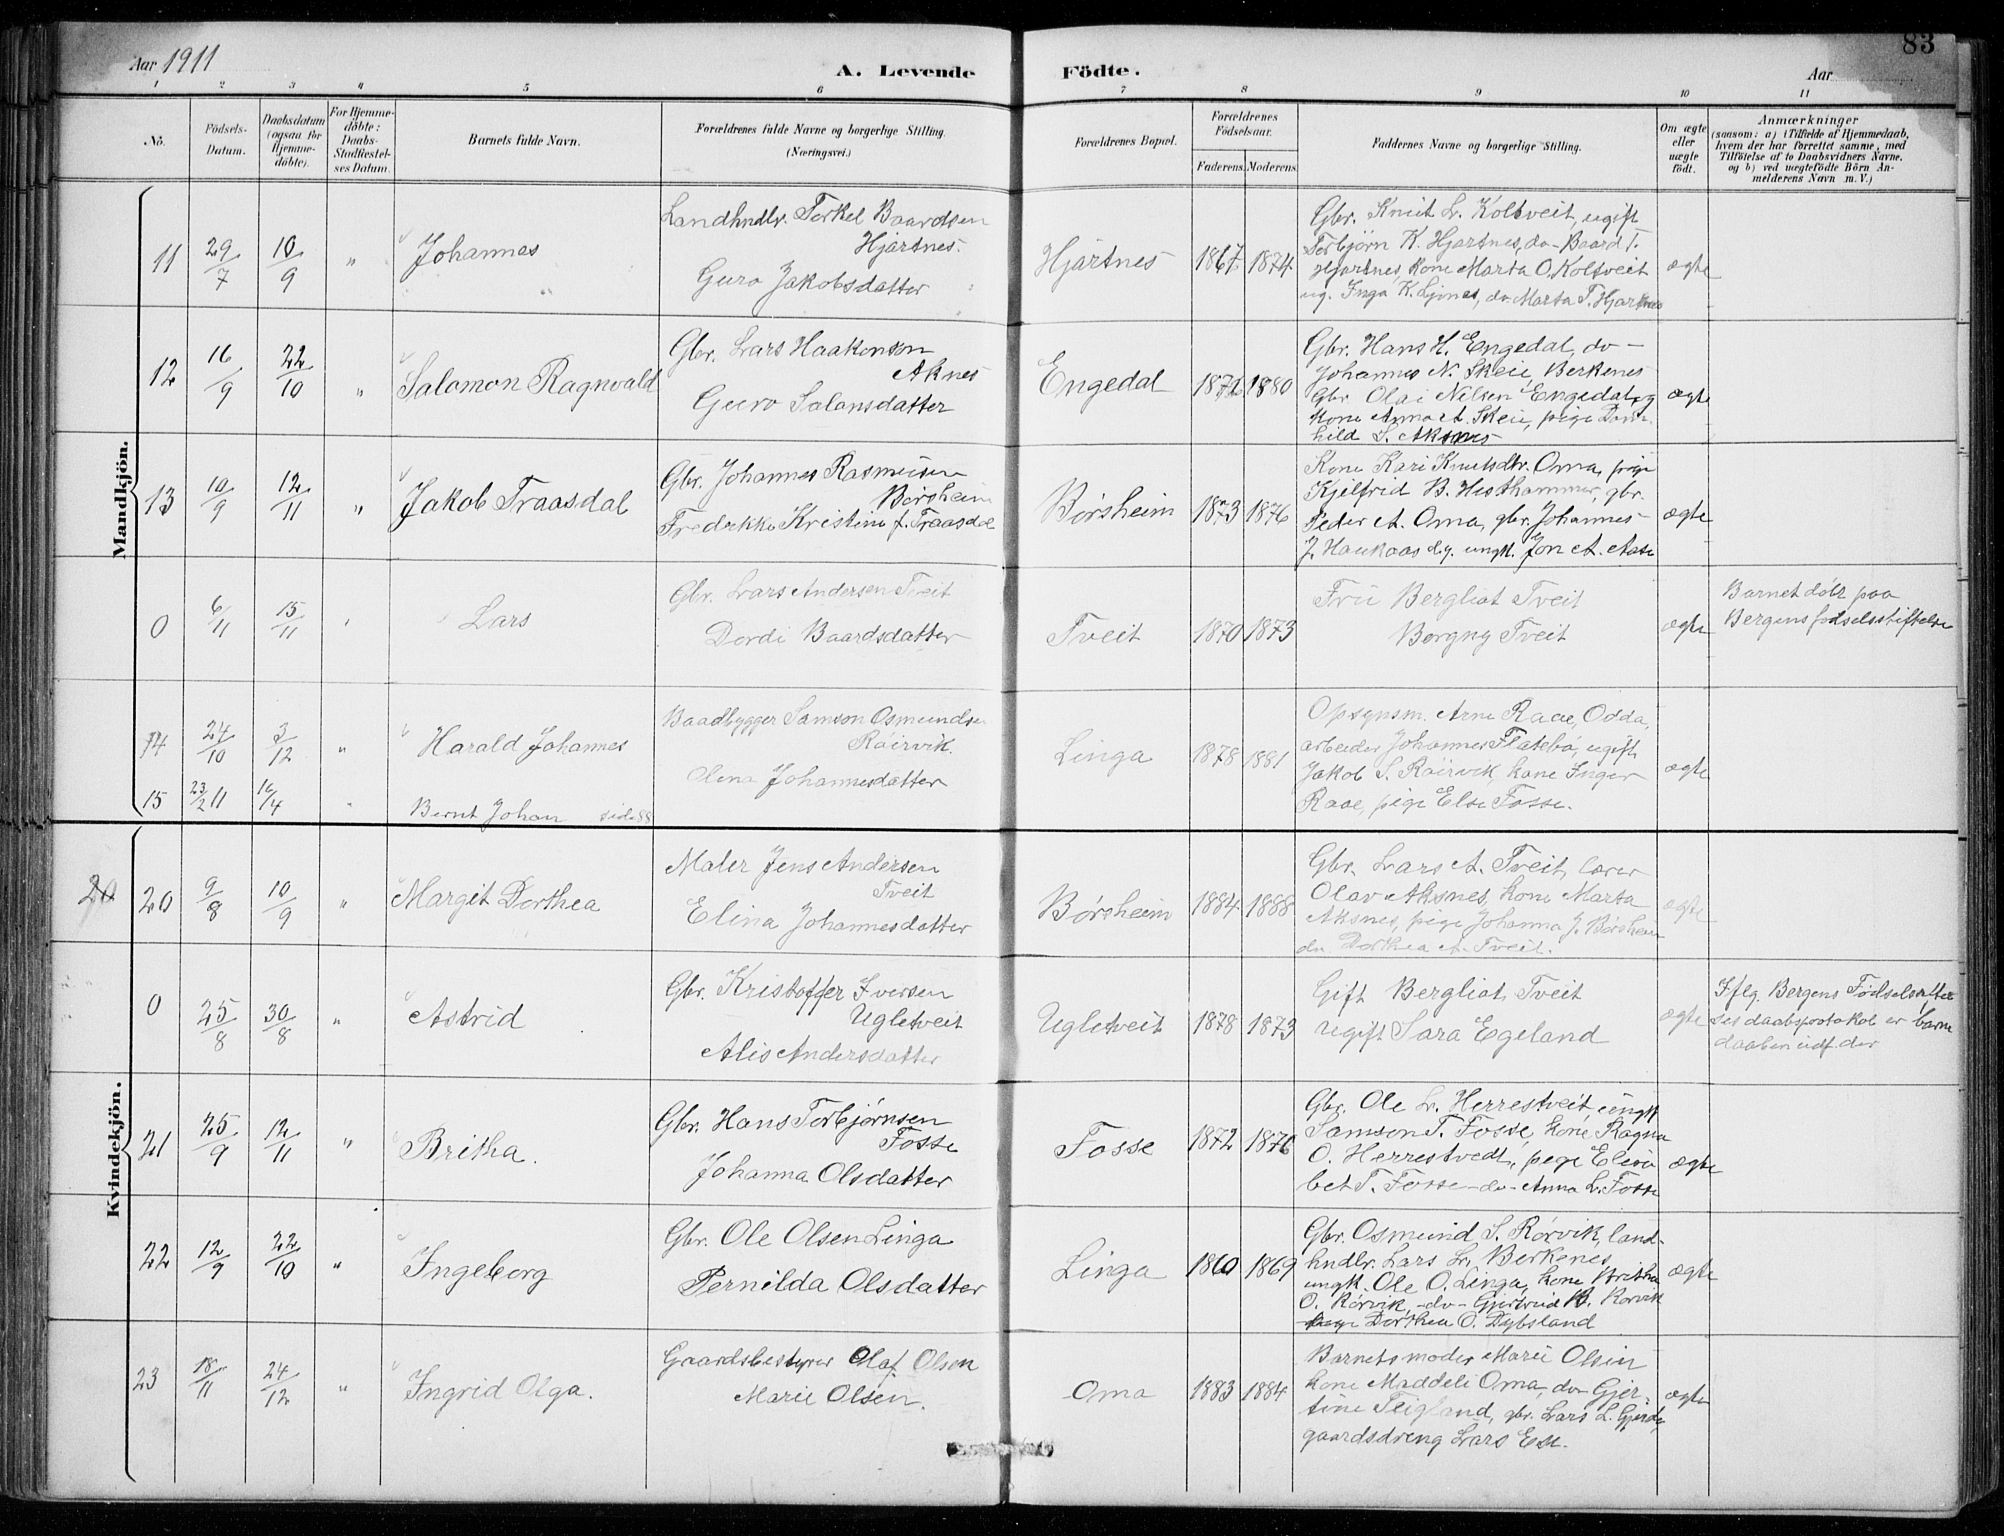 83
Aar 1911
A. Levende
Födte.
Aar
1 2 3 4 5 6 7 8 9 10 11
No.
Födsels-Datum.
Daabsdatum (ogsaa for Hjemmedöbte).
For Hjemmedöbte: Daabs-Stadfæstelses Datum.
Barnets fulde Navn.
Forældrenes fulde Navne og borgerlige Stilling. (Næringsvei.)
Forældrenes Bopæl.
Forældrenes Födselsaar.
Faderens. Moderens.
Faddernes Navne og borgerlige Stilling.
Om ægte eller uægte födt.
Anmærkninger
(saasom: a) i Tilfælde af Hjemmedaab,
hvem der har forrettet samme, med
Tilföielse af to Daabsvidners Navne,
og b) ved uægtefödte Börn An-
melderens Navn m. V.)
Mandkjön.
11 29/7 10/9 " Johannes
Landhndlr. Torkel Baardsen
Hjartnes.
Guro Jakobsdatter
Hjartnes 1867 1874
Gbr. Knut L. Koltveit, ugift
Torbjørn K. Hjartnes, do - Baard T.
Hjartnes, kone Marta O. Koltveit
ug. Inga K. Ljones, do Marta T. Hjartnes
ægte
12 16/9 22/10 " Salomon Ragnvald
Gbr. Lars Haakonsen
Aknes
Guro Salansdatter
Engedal 1880
Gbr. Hans H. Engedal, do -
Johannes N. Skeie Berkenes
Gbr Olai Nilsen Engedal og
kone Anna A. Skeie, pige Dom-
hild S. Aksnes
ægte
13 10/9 12/11 " Jakob Traasdal
Gbr. Johannes Rasmusen
Børsheim
Fredrikke Kristine f. Traasdal
Børsheim 1873 1876
Kone Kari Knutsdtr. Oma, pige
Kjelfrid B. Hesthammer, gbr.
Peder A. Oma, gbr. Johannes
J. Haukaas d.y. ungk. Jon A. Aase
ægte
0 6/11 15/11 Lars
Gbr. Lars Andersen Tveit
Dordi Baardsdatter
Tveit 1870 1873
Frü Bergliot Tveit
Borgny Tveit
ægte
Barnet døbt paa
Bergens fødselsstiftelse
14 24/10 3/12 " Harald Johannes
Baadbygger Samson Osmundsen
Røirvik.
Olina Johannesdatter
Linga 1878 1881
Opsynsm. Arne Raae, Odda,
arbeider Johannes Flatebø, ugift
Jakob S. Røirvik, kone Inger
Raae, pige Else Fosse.
ægte
15 23/2 11 16/4 " Bernt Johan side 88
Kvindekjön.
20 20 9/8 10/9 " Margit Dorthea
Maler Jens Andersen
Tveit
Elina Johannesdatter
Børsheim 1884 1888
Gbr. Lars A. Tveit, lærer
Olav Aksnes, kone Marta
Aksnes, pige Johanna J. Børsheim
do Dorthea A. Tveit.
ægte
0 25/8 30/8 " Astrid
Gbr. Kristoffer Iversen
Ugletveit
Alis Andersdatter
Ugletveit 1878 1873
Gift Bergliot Tveit
Ugift Sara Egeland
ægte
Iflg. Bergens Fødselsstiftel
ses daabsprotokol er barne
daaben udf. der
21 25/9 12/11 " Britha.
Gbr. Hans Torbjørnsen
Fosse
Johanna Olsdatter
Fosse 1872 1876
Gbr. Ole L. Herrestveit, ungk
Samson T. Fosse, kone Ragna
O. Herrestvedt, pige Elisa
bet T. Fosse - do - Anna L. Fosse
ægte
22 12/9 22/10 " Ingeborg
Gbr. Ole Olsen Linga
Pernilda Olsdatter
Linga 1860 1869
Gbr. Osmund S. Rørvik, land-
hndlr. Lars L. Berkenes,
ungk. Ole O. Linga, kone Britha
O. Rørvik, - do - Gjertrud B. Rørvik
pige Dorthea O. Dybsland
ægte
23 18/11 24/12 " Ingrid Olga.
Gaardsbestyrer Olaf Olsen
Marie Olsen.
Oma 1883 1884
Barnets moder Marie Olsen
kone Maddeli Oma, do Gjer-
tine Teigland, gbr. Lars L.
gaardsdreng Lars
ægte